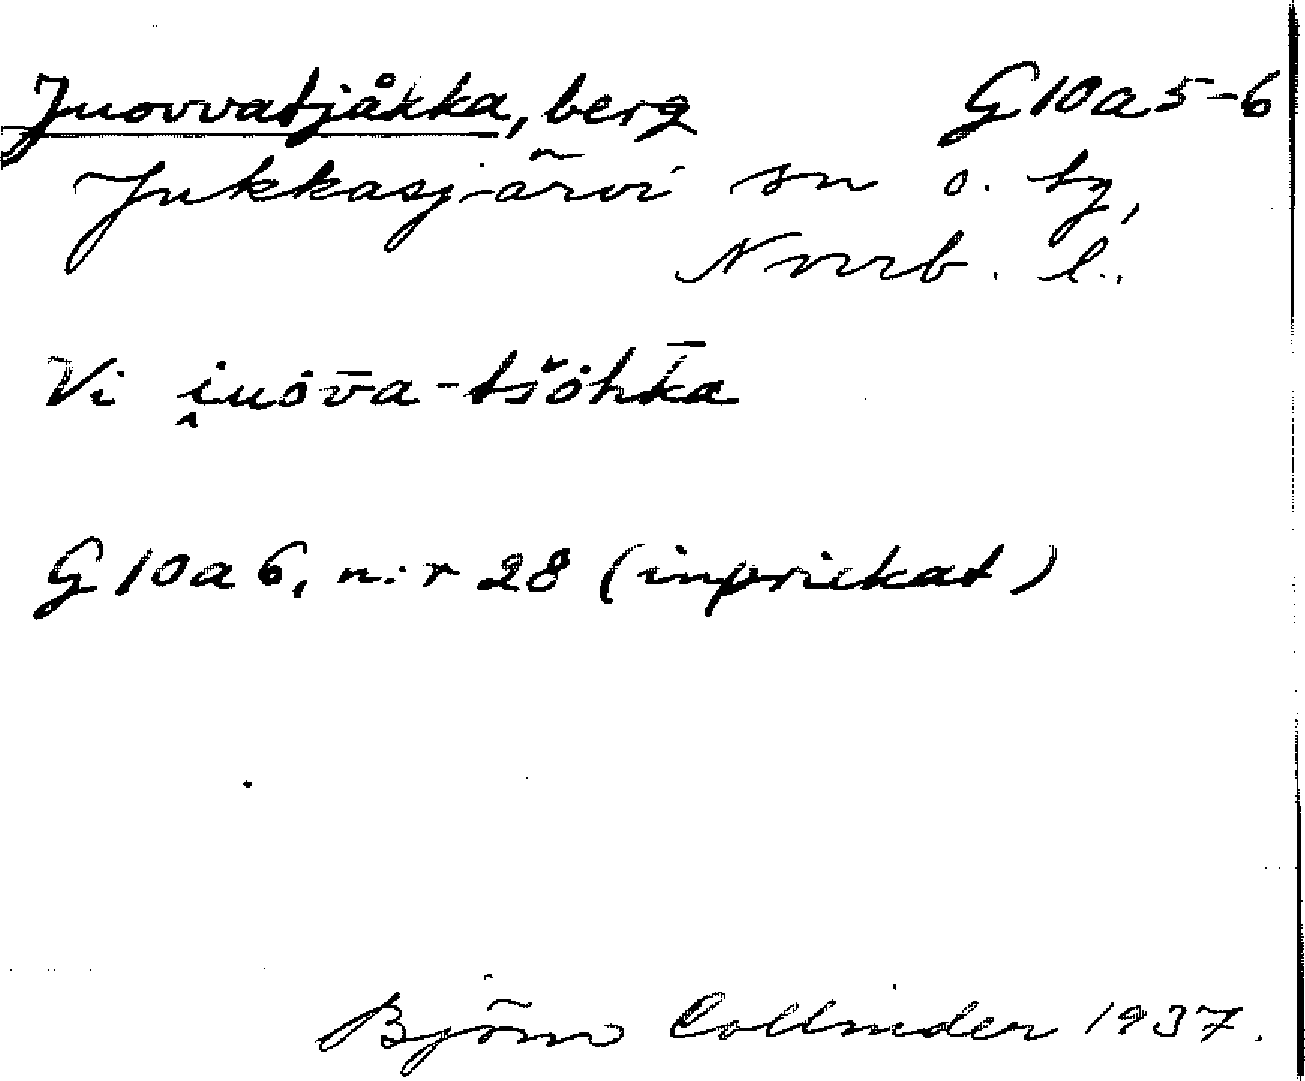 Juovvatjåkka, berg G10a5-6
Jukkasjärvi sn o. tg,
Norrb. l.
Vi i̯uōv̄a-tšŏhk̄a
G10a6, n:r 28 (inprickat)
Björn Collinder 1937.